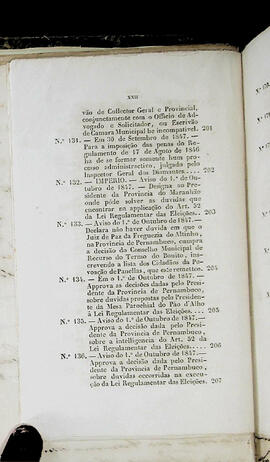 XXII
vão de Collector Geral e Provincial,
conjunctamente com o Officio de Ad-
vogado e Solicitador, ou Escrivão
de Camara Municipal he incompativel. 201
N.º 131. — Em 30 de Setembro de 1847. —
Para a imposição das penas do Re-
gulamento de 17 de Agosto de 1846
ha de se formar somente hum pro-
cesso administrativo, julgado pelo
Inspector Geral dos Diamantes..... 202
N.º 132. — IMPERIO. — Aviso do 1.º de Ou-
tubro de 1847. — Designa ao Pre-
sidente da Provincia do Maranhão
onde póde solver as duvidas que
encontrar na applicação do Art. 52
da Lei Regulamentar das Eleições.. 203
N.º 133. — Aviso do 1.º de Outubro de 1847. —
Declara não haver duvida em que o
Juiz de Paz da Freguezia do Altinho,
na Provincia de Pernambuco, cumpra
a decisão do Conselho Municipal de
Recurso do Termo do Bonito, ins-
crevendo a lista dos Cidadãos da Po-
voação de Panellas, que este remetteo.
N.º 134. — Em o 1.º de Outubro de 1847. —
Approva as decisões dadas pelo Pre-
sidente da Provincia de Pernambuco,
sobre duvidas propostas pelo Presiden-
te da Mesa Parochial do Páo d'Alho
á Lei Regulamentar das Eleições... 205
N.º 135. — Aviso do 1.º de Outubro de 1847. —
Approva a decisão dada pelo Presi-
dente da Provincia de Pernambuco,
sobre a intelligencia do Art. 52 da
Lei Regulamentar das Eleições.... 206
N.º 136. — Aviso do 1.º de Outubro de 1847. —
Approva a decisão dada pelo Presi-
dente da Provincia de Pernambuco,
sobre duvidas occorridas na execu-
ção da Lei Regulamentar das Eleições. 207